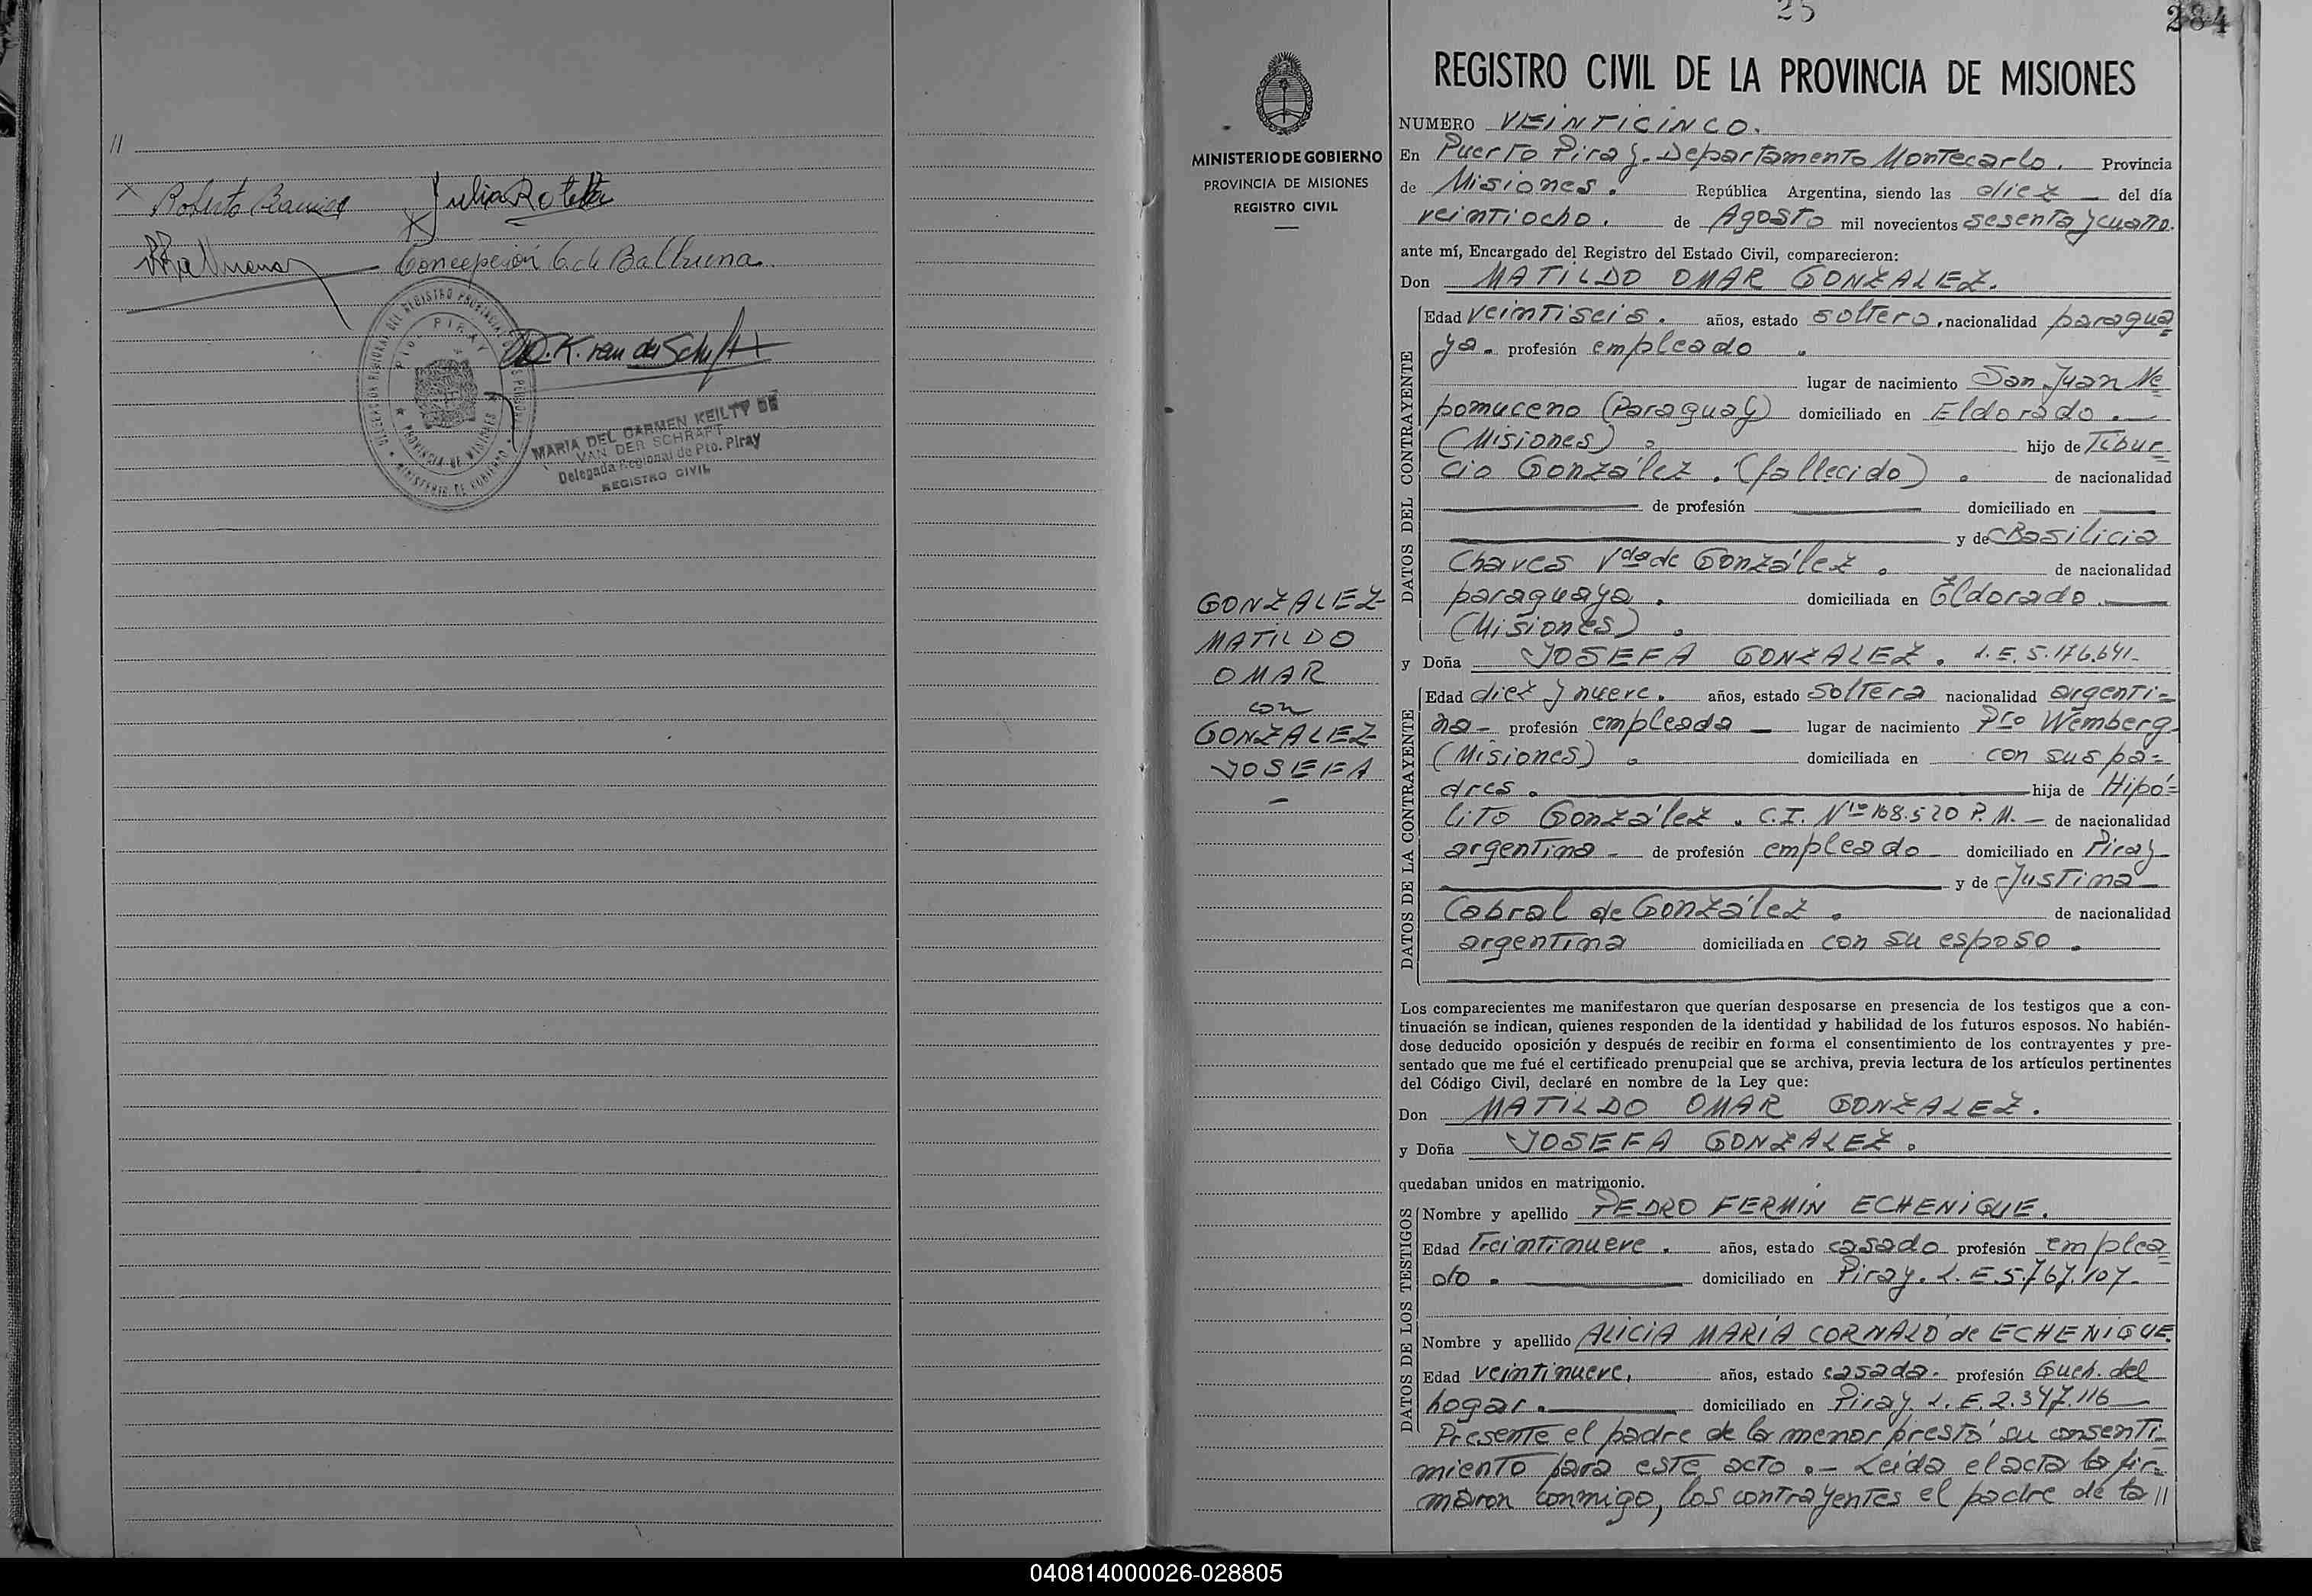 //
Roberto Ramirez
Julia Rotela
Concepción C. de Balbuena
MARIA DEL CARMEN KEILTY DE
VAN DER SCHRAFT
Delegada Regional de Pto. Piray
REGISTRO CIVIL
PROVINCIA DE MISIONES
MINISTERIO DE GOBIERNO
PROVINCIA DE MISIONES
REGISTRO CIVIL
GONZALEZ
MATILDO
OMAR
con
GONZALEZ
JOSEFA
25
284
REGISTRO CIVIL DE LA PROVINCIA DE MISIONES
NUMERO VEINTICINCO.
En Puerto Piray. Departamento Montecarlo. Provincia
de Misiones. República Argentina, siendo las diez del día
veintiocho. de Agosto mil novecientos sesenta y cuatro.
ante mí, Encargado del Registro del Estado Civil, comparecieron:
Don MATILDO OMAR GONZALEZ.
DATOS DEL CONTRAYENTE
Edad veintiseis. años, estado soltero, nacionalidad paragua=
ya. profesión empleado.
lugar de nacimiento San Juan Ne=
pomuceno (Paraguay) domiciliado en Eldorado.
(Misiones). hijo de Tibur=
cio González. (fallecido). de nacionalidad
de profesión domiciliado en
y de Basilicia
Chaves Vda de González. de nacionalidad
paraguaya. domiciliada en Eldorado.
(Misiones).
y Doña JOSEFA GONZALEZ. L.E. 5.176.641-
DATOS DE LA CONTRAYENTE
Edad diez y nueve. años, estado soltera nacionalidad argenti=
na- profesión empleada — lugar de nacimiento Pto Wemberg
(Misiones). domiciliada en con sus pa=
dres. hija de Hipó=
lito González. C.I. Nro 168.520 P.M. — de nacionalidad
argentina - de profesión empleado - domiciliado en Piray
y de Justina
Cabral de González. de nacionalidad
argentina domiciliada en con su esposo.
Los comparecientes me manifestaron que querían desposarse en presencia de los testigos que a con-
tinuación se indican, quienes responden de la identidad y habilidad de los futuros esposos. No habién-
dose deducido oposición y después de recibir en forma el consentimiento de los contrayentes y pre-
sentado que me fué el certificado prenupcial que se archiva, previa lectura de los artículos pertinentes
del Código Civil, declaré en nombre de la Ley que:
Don MATILDO OMAR GONZALEZ.
y Doña JOSEFA GONZALEZ.
quedaban unidos en matrimonio.
DATOS DE LOS TESTIGOS
Nombre y apellido PEDRO FERMIN ECHENIQUE.
Edad Treintinueve. años, estado casado profesión emplea=
do. domiciliado en Piray. L.E 5.767.107-
Nombre y apellido ALICIA MARIA CORNALÓ de ECHENIQUE.
Edad veintinueve, años, estado casada. profesión Queh. del
hogar. domiciliado en Piray. L.E. 2.347.116
Presente el padre de la menor prestó su consenti=
miento para este acto.- Leída el acta la fir=
maron conmigo, los contrayentes el padre de la //
040814000026-028805